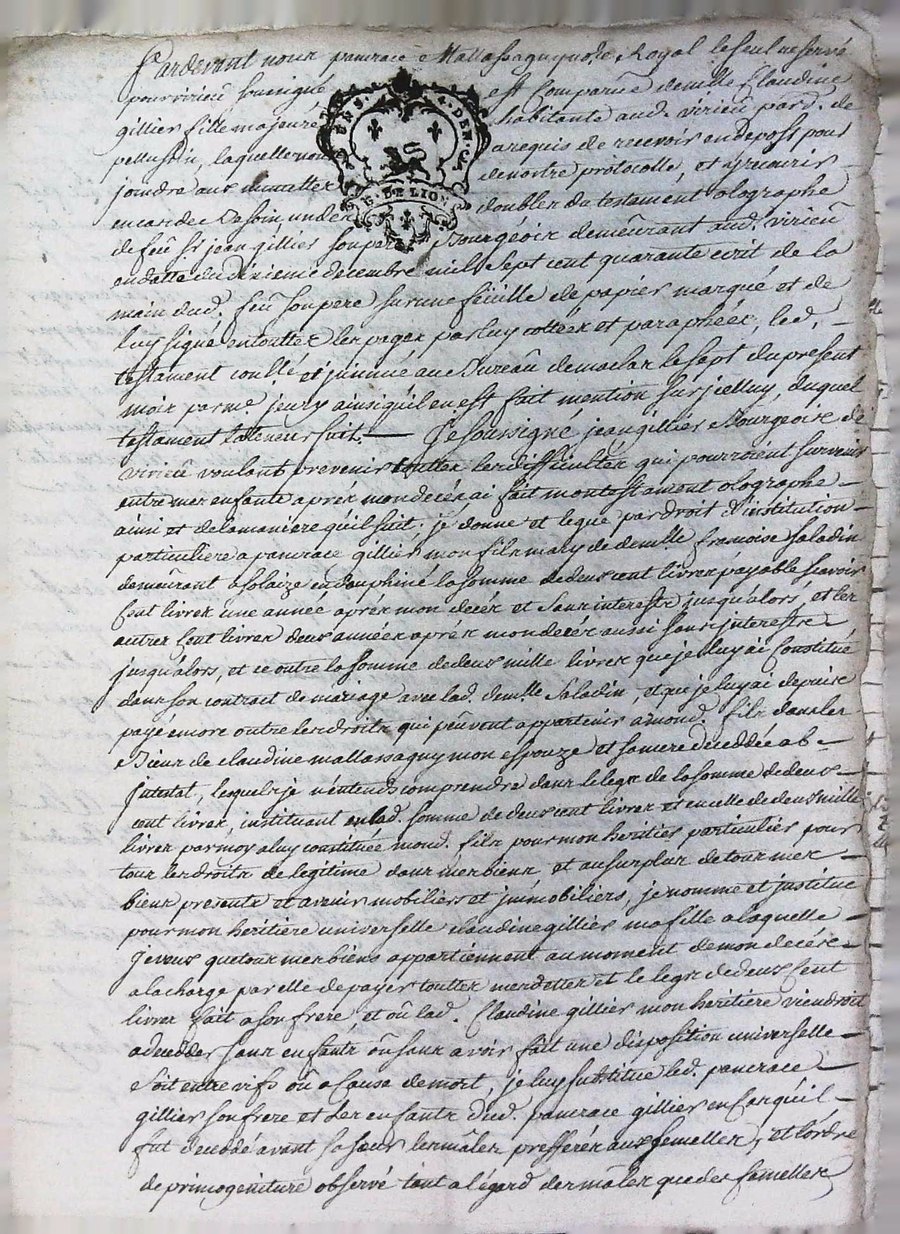 Pardevant nous pancrace Mallassagny no.re Royal le seul reservé
pour virieu soussigné est Comparüe demlle Claudine
gillier fille majeure habitante aud. virieu par.d. de
pellussin, laquelle nous a requis de recevoir en depost pour
joindre aux minuttes de nostre protocolle, et y recourir
en cas de besoin, un des doubles du testament olographe
de feü Sr jean gillier son pere Bourgeoix demeurant aud. virieü
en datte du dixieme decembre mil sept cent quarante ecrit de la
main dud. feü son pere sur une feüille de papier marqué et de
luy signé en touttes les pages par luy cottéex et paraphéex, led.
testament conllé et jnsinué au Bureau de maclas le sept du present
mois par me. jeury ainsi qu'il en est fait mention sur jcelluy, duquel
testament la teneur suit. — Je soussigné jean gillier Bourgeoix de
virieü voulant prevenir touttes les difficultés qui pourroient survenir
entre mes enfants aprés mon decés ai fait mon testament olographe
ainsi et de la maniere qu'il suit; je donne et legue par droit d'institution
particuliere a pancrace gillier mon fils mary de demlle francoise Saladin
demeurant a Solaize en dauphiné la somme de deux cent livres payable scavoir
Cent livres une année aprés mon decés et sans interestx jusqu'alors, et les
autres cent livres deux annéex aprés mon decés aussi sans jnterestx
jusqu'alors, et ce outre la somme de deux mille livres que je luy ai Constitué
dans son contract de mariage avec lad. demlle. Saladin, et que je luy ai depuis
payé encore outre les droits qui peuvent appartenir a mond. fils dans les
Bieux de claudine mallassagny mon espouze et sa mere deceddée ab
jntestat, lesquels je n'entends comprendre dans le legs de la somme de deux
cent livres, instituant en lad. somme de deux cent livres et en celle de deux mille
livres par moy a luy constituée mond. fils pour mon heritier particulier pour
tous les droits de legitime dans mes biens et au surplus de tous mes
biens presents et avenir mobiliers et jmmobiliers, je nomme et jnstitue
pour mon heritiere universelle claudine gillier ma fille a laquelle
je veux que tous mes biens appartiennent au moment de mon decés
a la charge par elle de payer touttes mes dettes et le legs de deux Cent
livres fait a son frere, et oû lad. Claudine gillier mon heritiere viendroit
a decedder sans enfants oû sans avoir fait une disposition universelle
Soit entre vifs oû a Cause de mort, je luy substitue led. pancrace
gillier son frere et les enfants dud. pancrace gillier en cas qu'il
fut deceddé avant sa sœur les mâles prefferés aux femelles, et l'ordre
de primogeniture observé tant a l'egard des mâles que des femelles